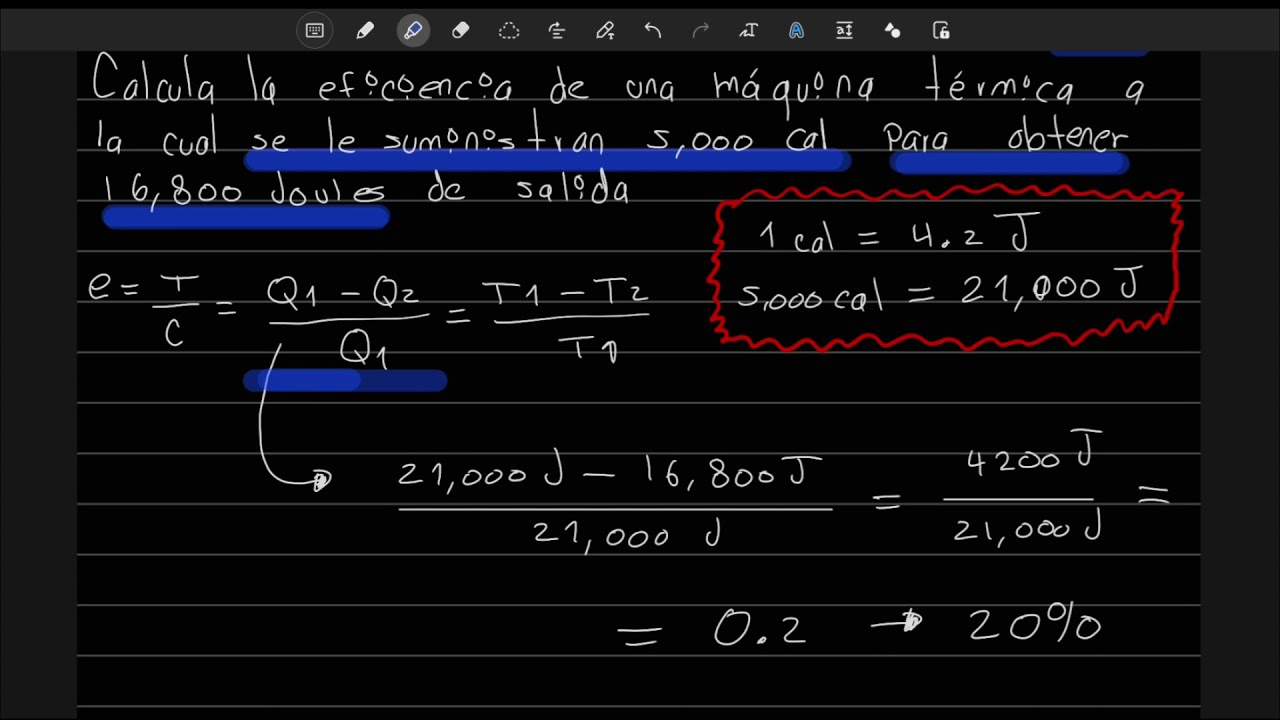 Calcula la eficiencia de una máquina térmica a
la cual se le suministran 5,000 cal para obtener
16,800 Joules de salida
1 cal = 4.2 J
5,000 cal = 21,000 J
e = T/C = Q1 - Q2/Q1 = T1 - T2/T1
21,000 J - 16,800 J/21,000 J = 4200 J/21,000 J =
= 0.2 → 20%